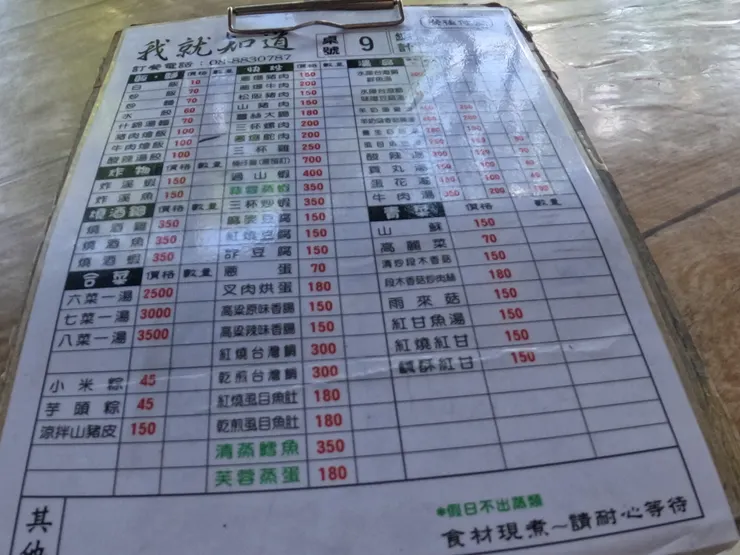 我就知道
桌號 9
訂餐電話：08-8830787
飯、麵 價格 數量
白飯 10
炒飯 70
炒麵 70
水餃 60
什錦湯麵 70
豬肉燴飯 100
牛肉燴飯 100
酸辣湯餃 100
炸物 價格 數量
炸溪蝦 150
炸溪魚 150
燒酒類 價格 數量
燒酒雞 350
燒酒魚 350
燒酒蝦 350
合菜 價格 數量
六菜一湯 2500
七菜一湯 3000
八菜一湯 3500
小米粽 45
芋頭粽 45
涼拌山豬皮 150
快炒 價格 數量
蔥爆豬肉 150
蔥爆牛肉 200
松阪豬肉 200
山豬肉 150
薑絲大腸 180
三杯螺肉 200
200
三杯雞 250
700
過山蝦 400
蒜蓉蒸蝦 350
三杯炒蝦 350
麻婆豆腐 150
紅燒豆腐 150
豆腐 150
蔥蛋 70
叉肉烘蛋 180
高粱原味香腸 150
高粱辣味香腸 150
紅燒台灣鯛 300
乾煎台灣鯛 300
紅燒虱目魚肚 180
乾煎虱目魚肚 180
清蒸鱈魚 350
芙蓉蒸蛋 180
湯類
酸辣湯
貢丸湯
蛋花湯
牛肉湯
青菜 價格 數量
山蘇 150
高麗菜 70
清炒段木香菇 150
段木香菇炒肉絲 180
雨來菇 150
紅甘魚湯 150
紅燒紅甘 150
鹹酥紅甘 150
其他
*假日不出蒸類
食材現煮~請耐心等待